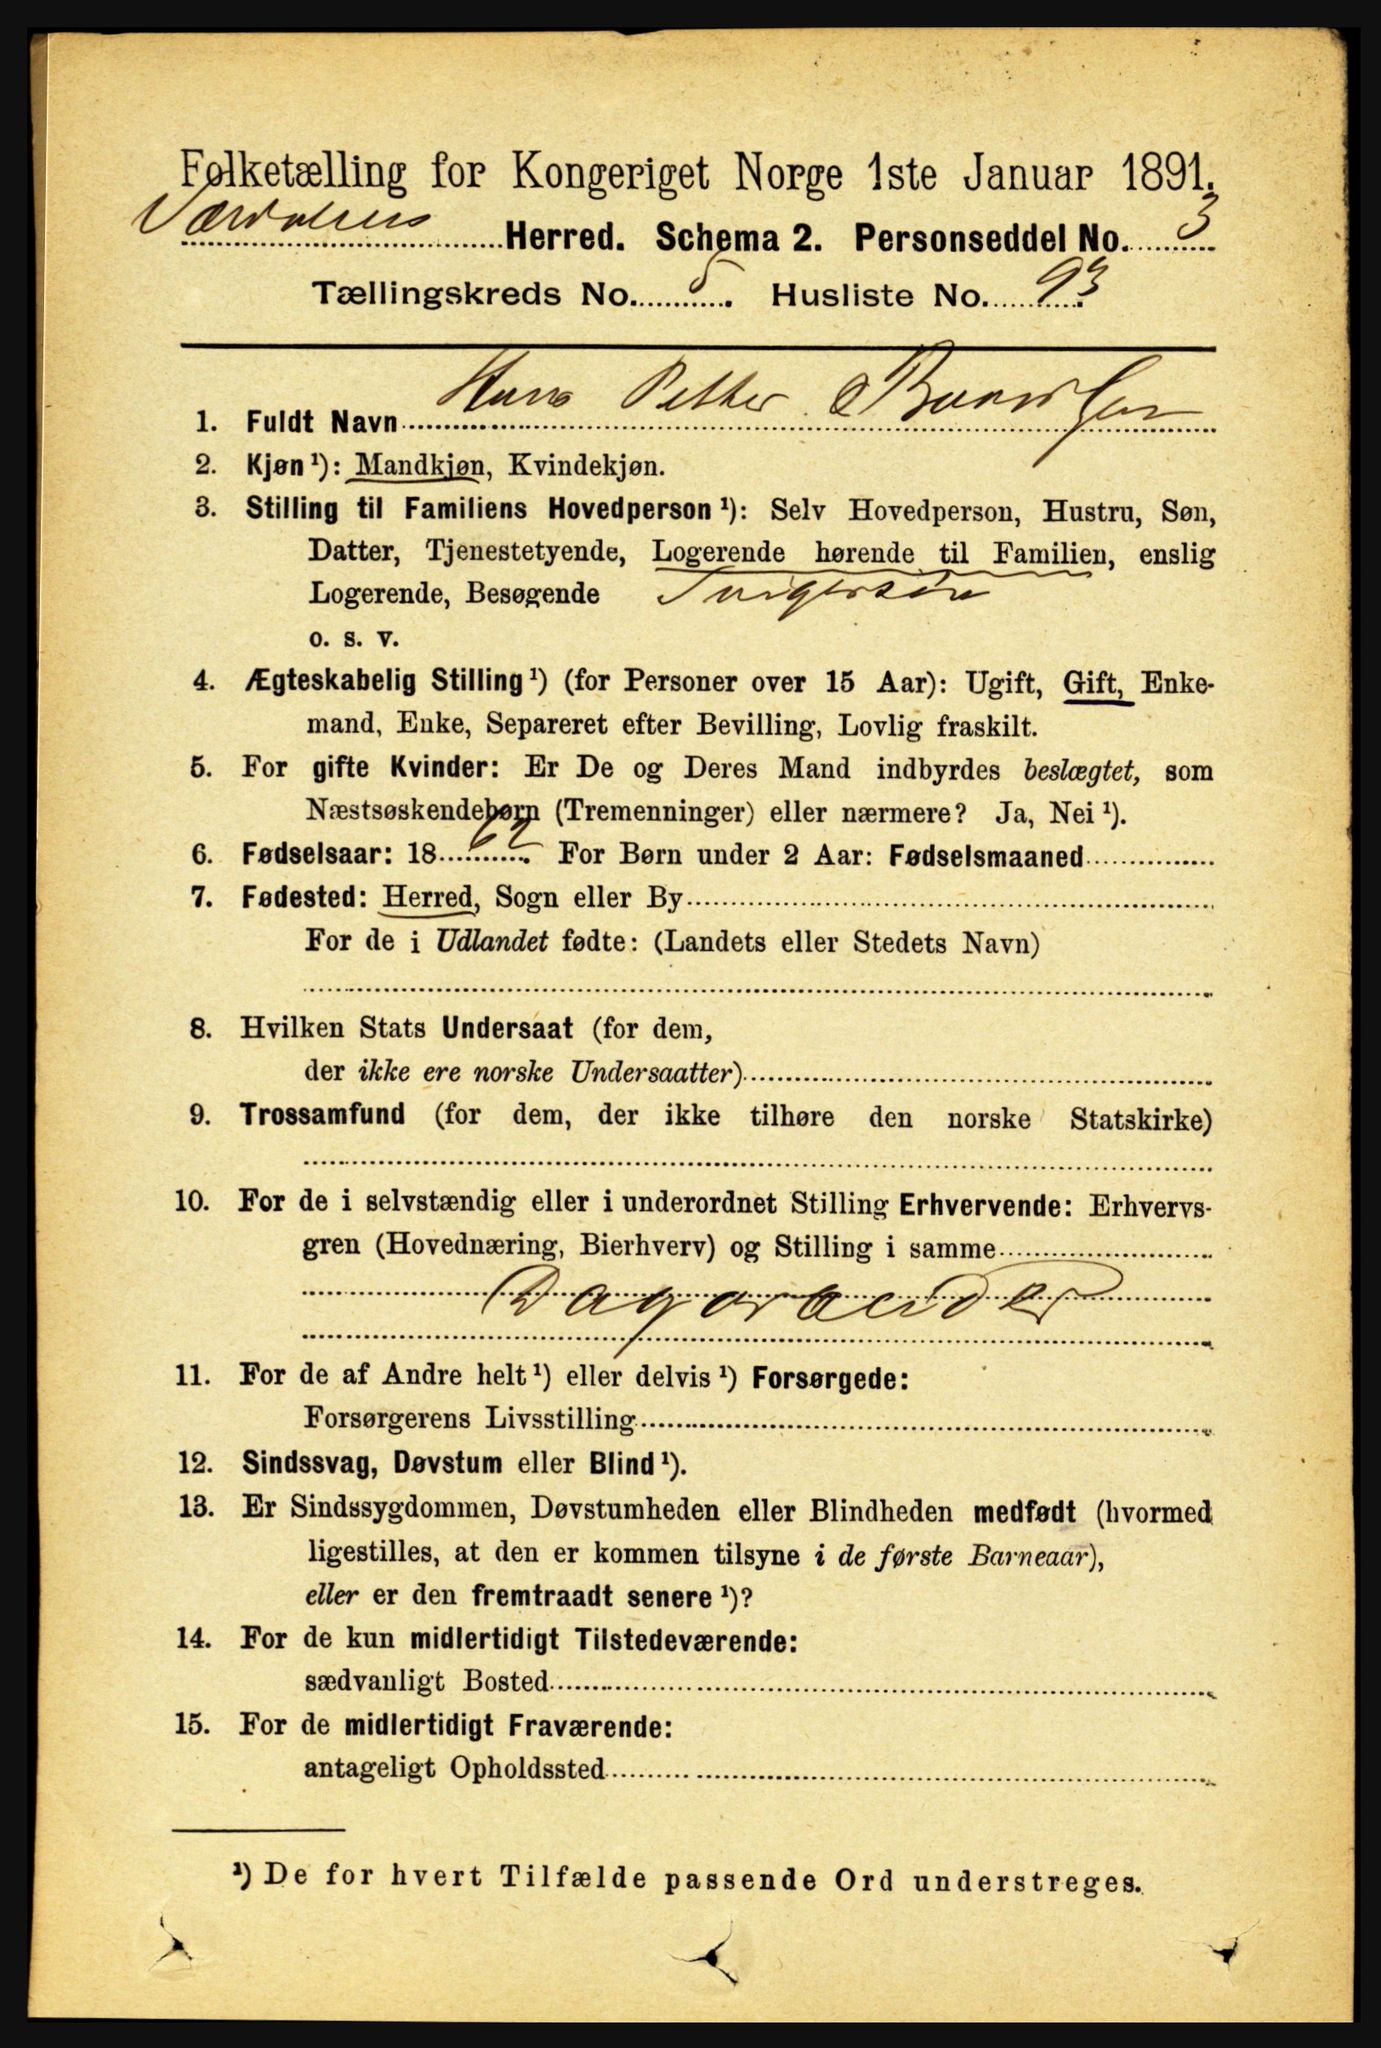 Folketælling for Kongeriget Norge 1ste Januar 1891.
Værdalens Herred. Schema 2. Personseddel No. 3
Tællingskreds No. 5. Husliste No. 93
1. Fuldt Navn Hans Petter
2. Kjøn¹): Mandkjøn, Kvindekjøn.
3. Stilling til Familiens Hovedperson¹): Selv Hovedperson, Hustru, Søn,
Datter, Tjenestetyende, Logerende hørende til Familien, enslig
Logerende, Besøgende Svigersøn
o. s. v.
4. Ægteskabelig Stilling¹) (for Personer over 15 Aar): Ugift, Gift, Enke-
mand, Enke, Separeret efter Bevilling, Lovlig fraskilt.
5. For gifte Kvinder: Er De og Deres Mand indbyrdes beslægtet, som
Næstsøskendebørn (Tremenninger) eller nærmere? Ja, Nei¹).
6. Fødselsaar: 1862. For Børn under 2 Aar: Fødselsmaaned
7. Fødested: Herred, Sogn eller By
For de i Udlandet fødte: (Landets eller Stedets Navn)
8. Hvilken Stats Undersaat (for dem,
der ikke ere norske Undersaatter)
9. Trossamfund (for dem, der ikke tilhøre den norske Statskirke)
10. For de i selvstændig eller i underordnet Stilling Erhvervende: Erhvervs-
gren (Hovednæring, Bierhverv) og Stilling i samme
Dagarbeider
11. For de af Andre helt¹) eller delvis¹) Forsørgede:
Forsørgerens Livsstilling
12. Sindssvag, Døvstum eller Blind¹).
13. Er Sindssygdommen, Døvstumheden eller Blindheden medfødt (hvormed
ligestilles, at den er kommen tilsyne i de første Barneaar),
eller er den fremtraadt senere¹)?
14. For de kun midlertidigt Tilstedeværende:
sædvanligt Bosted
15. For de midlertidigt Fraværende:
antageligt Opholdssted
¹) De for hvert Tilfælde passende Ord understreges.